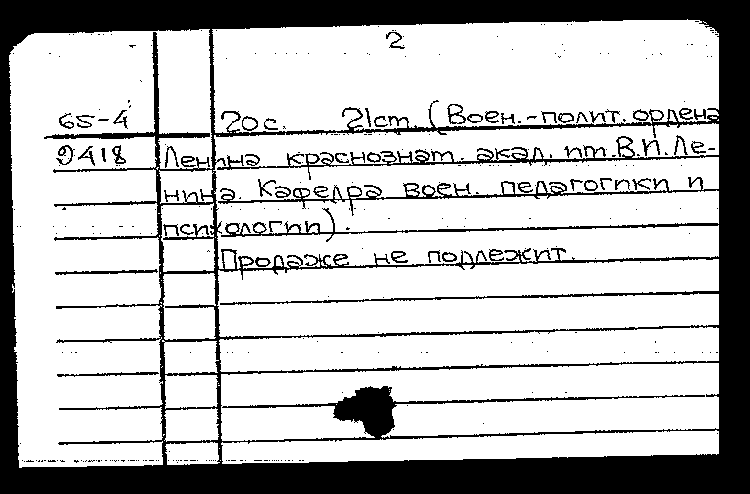 2
65-4 20с. 21ст. (Воен.-полит. ордена
9418 Ленина краснознам. акад. им. В.И. Ле-
нина. Кафедра воен. педагогики и
психологии).
Продаже не подлежит.